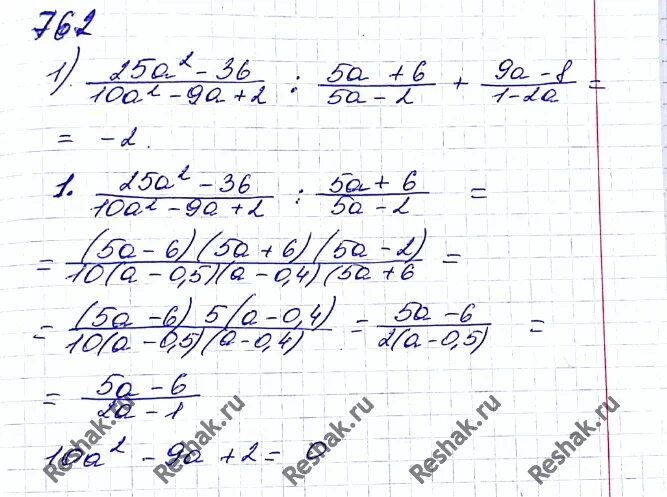 762
1). (25a² - 36)/(10a² - 9a + 2) : (5a + 6)/(5a - 2) + (9a - 8)/(1 - 2a) =
= -2.
1. (25a² - 36)/(10a² - 9a + 2) : (5a + 6)/(5a - 2) =
= ((5a - 6)(5a + 6)(5a - 2))/(10(a - 0,5)(a - 0,4)(5a + 6) =
= ((5a - 6) 5(a - 0,4))/(10(a - 0,5)(a - 0,4)) = (5a - 6)/(2(a - 0,5)) =
= (5a - 6)/(2a - 1)
10a² - 9a + 2 = 0
Reshak.ru
Reshak.ru
Reshak.ru
Reshak.ru
Reshak.ru